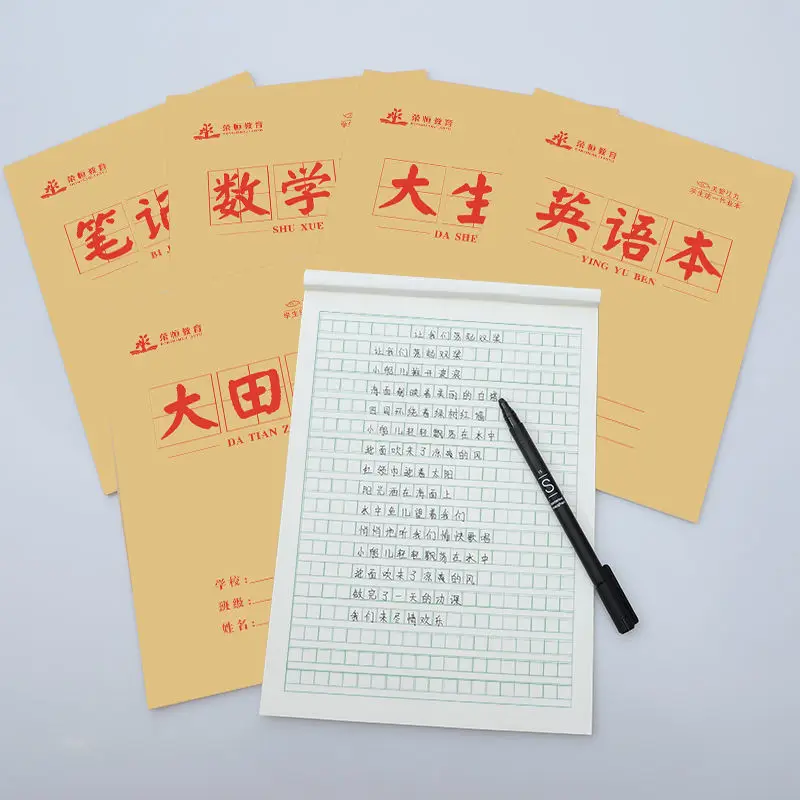 荣恒教育
笔记
BI
荣恒教育
数学
SHU XUE
荣恒教育
大生
DA SHE
荣恒教育
学生统一作业本
英语本
YING YU BEN
荣恒教育
学生
大田
DA TIAN Z
学校:
班级:
姓名:
让我们荡起双桨
让我们荡起双桨
小船儿推开波浪
海面倒映着美丽的白塔
四周环绕着绿树红墙
小船儿轻轻飘荡在水中
迎面吹来了凉爽的风
红领巾迎着太阳
阳光洒在海面上
水中鱼儿望着我们
悄悄地听我们愉快歌唱
小船儿轻轻飘荡在水中
迎面吹来了凉爽的风
做完了一天的功课
我们来尽情欢乐